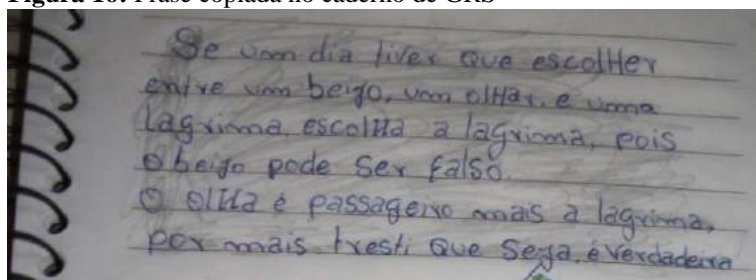 Figura 10: Frase copiada no caderno de GRS
Se um dia tiver que escolher
entre um beijo, um olhar, e uma
lagrima, escolha a lagrima, pois
O beijo pode ser falso.
O olha é passageiro mais a lagrima,
por mais tresti que seja, é verdadeira